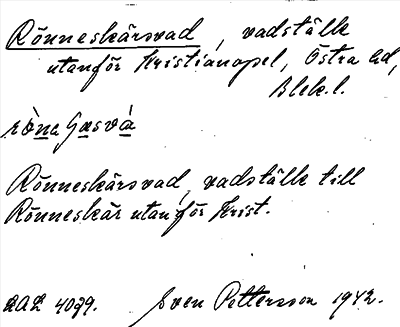 Rönneskärsvad, vadställe
utanför Kristianopel, Östra hd,
Blek.l.
Rönneskärsvad, vadställe till
Rönneskär utanför Krist.
4079. Sven Pettersson 1942.